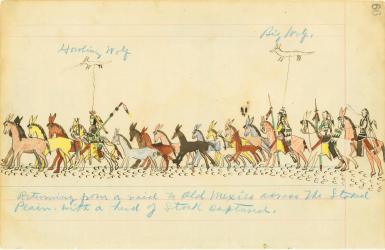 60
Big Wolf.
Howling Wolf
Returning from a raid to Old Mexico across The Staked
Plain. With a herd of Stock captured.